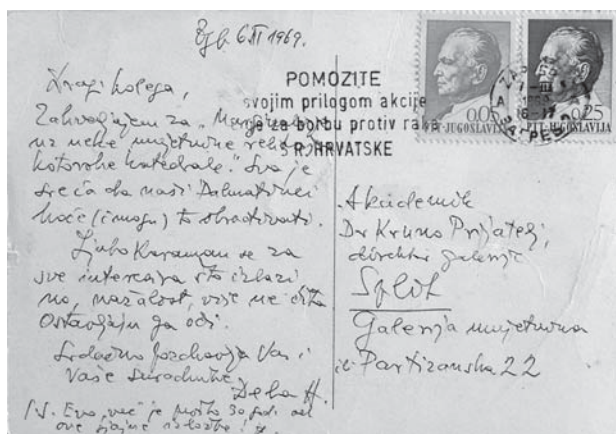 Zgb. 6. III 1969.
Dragi kolega,
Zahvaljujem za „Marginalije
uz neke umjetnine
kotorske katedrale." Sva je
sreća da naši Dalmatinci
hoće (i mogu) to obrađivati.
Ljubo Karaman se za
sve interesira što izlazi
no, nažalost, više ne čita
Ostavljaju ga oči.
Srdačno pozdravlja Vas i
Vaše suradnike
P.S. Evo, već je prošlo 30 god. od
ove sjajne izložbe!
POMOZITE
svojim prilogom akcije
za borbu protiv raka
SR HRVATSKE
0,05
JUGOSLAVIJA
0,25
JUGOSLAVIJA
Akademik
Dr Kruno Prijatelj,
direktor galerije
Split
Galerija umjetnina
Partizanska 22